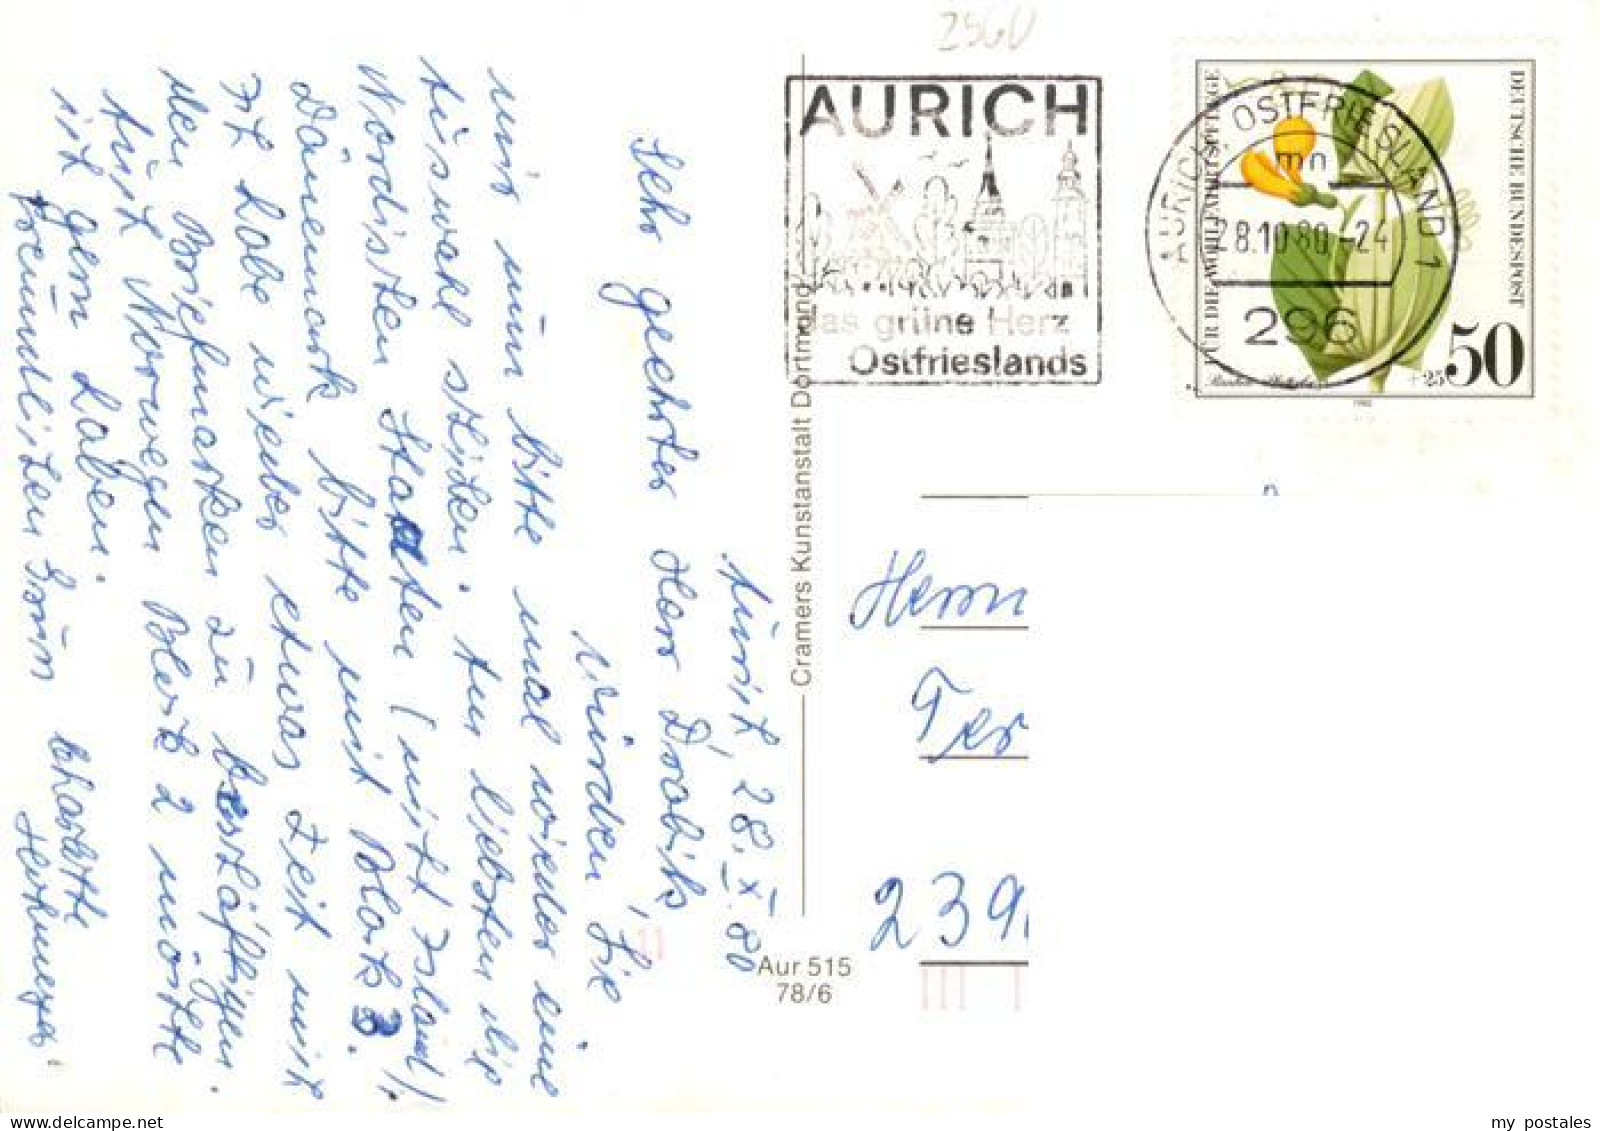 2560
AURICH
das grüne Herz
Ostfrieslands
AURICH, OSTFRIESLAND 1
mn
28.10.80.-24
296
FÜR DIE WOHLFAHRTSPFLEGE
DEUTSCHE BUNDESPOST
+25 50
1980
Aurich, 28. X. 80
Sehr geehrter Herr Drabik,
Würden Sie
mir nun bitte mal wieder eine
Auswahl schicken. Am liebsten die
Nordischen Staaten (nicht Island).
Dänemark bitte mit Block 3.
Ich habe wieder etwas Zeit mich
den Briefmarken zu beschäftigen.
Auch Norwegen Block 2 möchte
ich gern haben.
Freundlichen Gruß Charlotte
Cramers Kunstanstalt Dortmund
Aur 515
78/6
Herrn
239
my postales